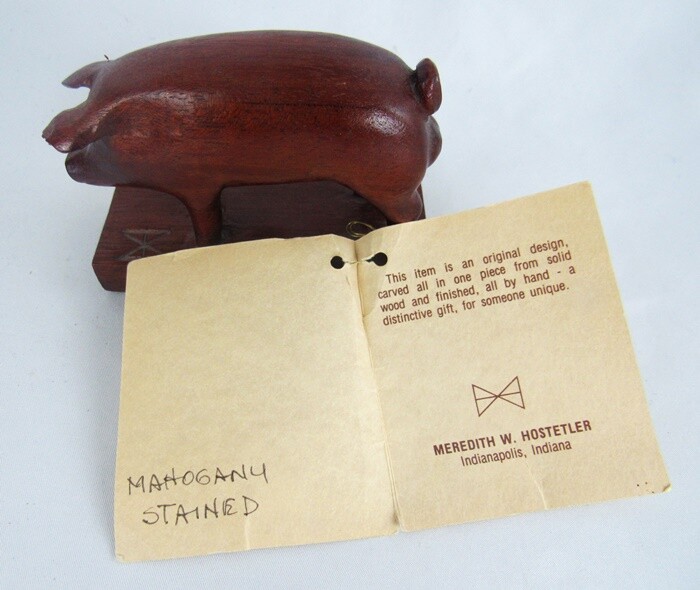 MAHOGANY
STAINED
This item is an original design,
carved all in one piece from solid
wood and finished, all by hand - a
distinctive gift, for someone unique.
MEREDITH W. HOSTETLER
Indianapolis, Indiana